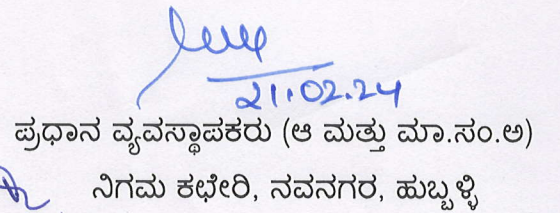 21.02.24
ಪ್ರಧಾನ ವ್ಯವಸ್ಥಾಪಕರು (ಆ ಮತ್ತು ಮಾ.ಸಂ.ಅ)
ನಿಗಮ ಕಛೇರಿ, ನವನಗರ, ಹುಬ್ಬಳ್ಳಿ